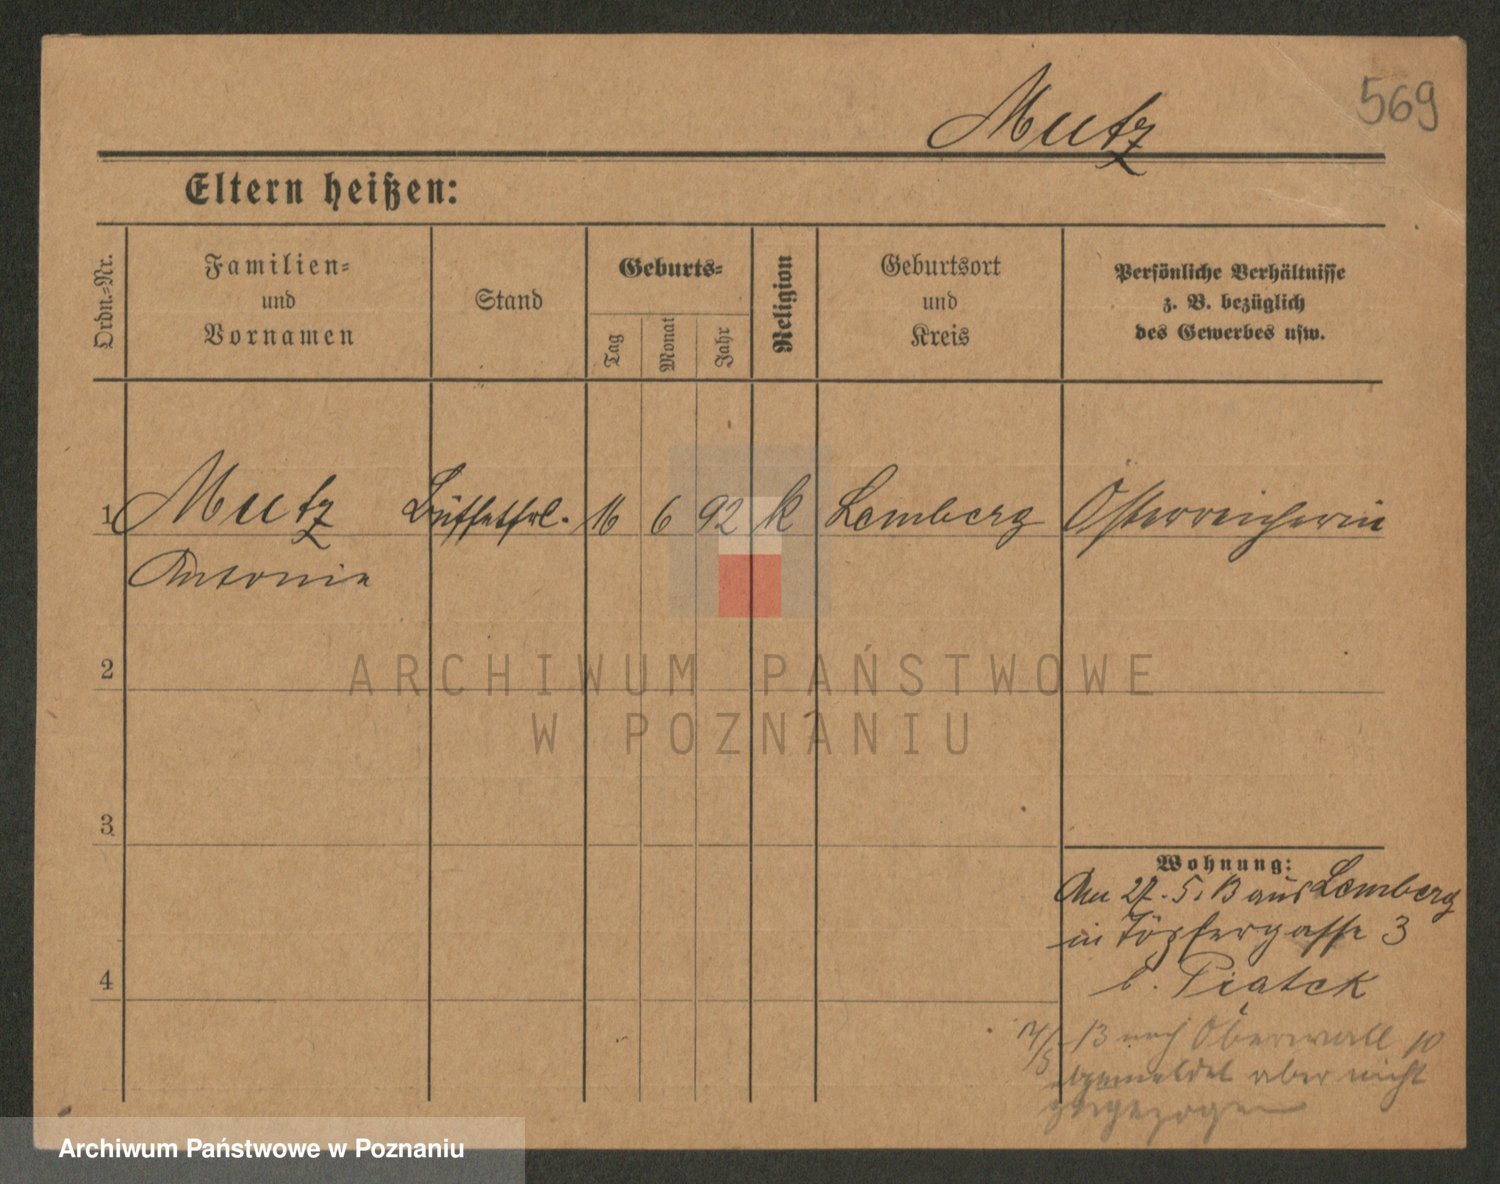 569
Mutz
Eltern heißen:
Ordn.-Nr.
Familien-
und
Vornamen
Stand
Geburts-
Tag
Monat
Jahr
Religion
Geburtsort
und
Kreis
Persönliche Verhältnisse
z. B. bezüglich
des Gewerbes usw.
1 Mutz Büffetfrl. 16 6 92 k Lemberg Österreicherin
Antonie
2
3
4
Wohnung:
27. 5. 13 aus Lemberg
in Töpfergasse 3
b. Piątek
13 nach Oberwall 10
abgemeldet aber nicht
zugezogen
ARCHIWUM PAŃSTWOWE
W POZNANIU
Archiwum Państwowe w Poznaniu